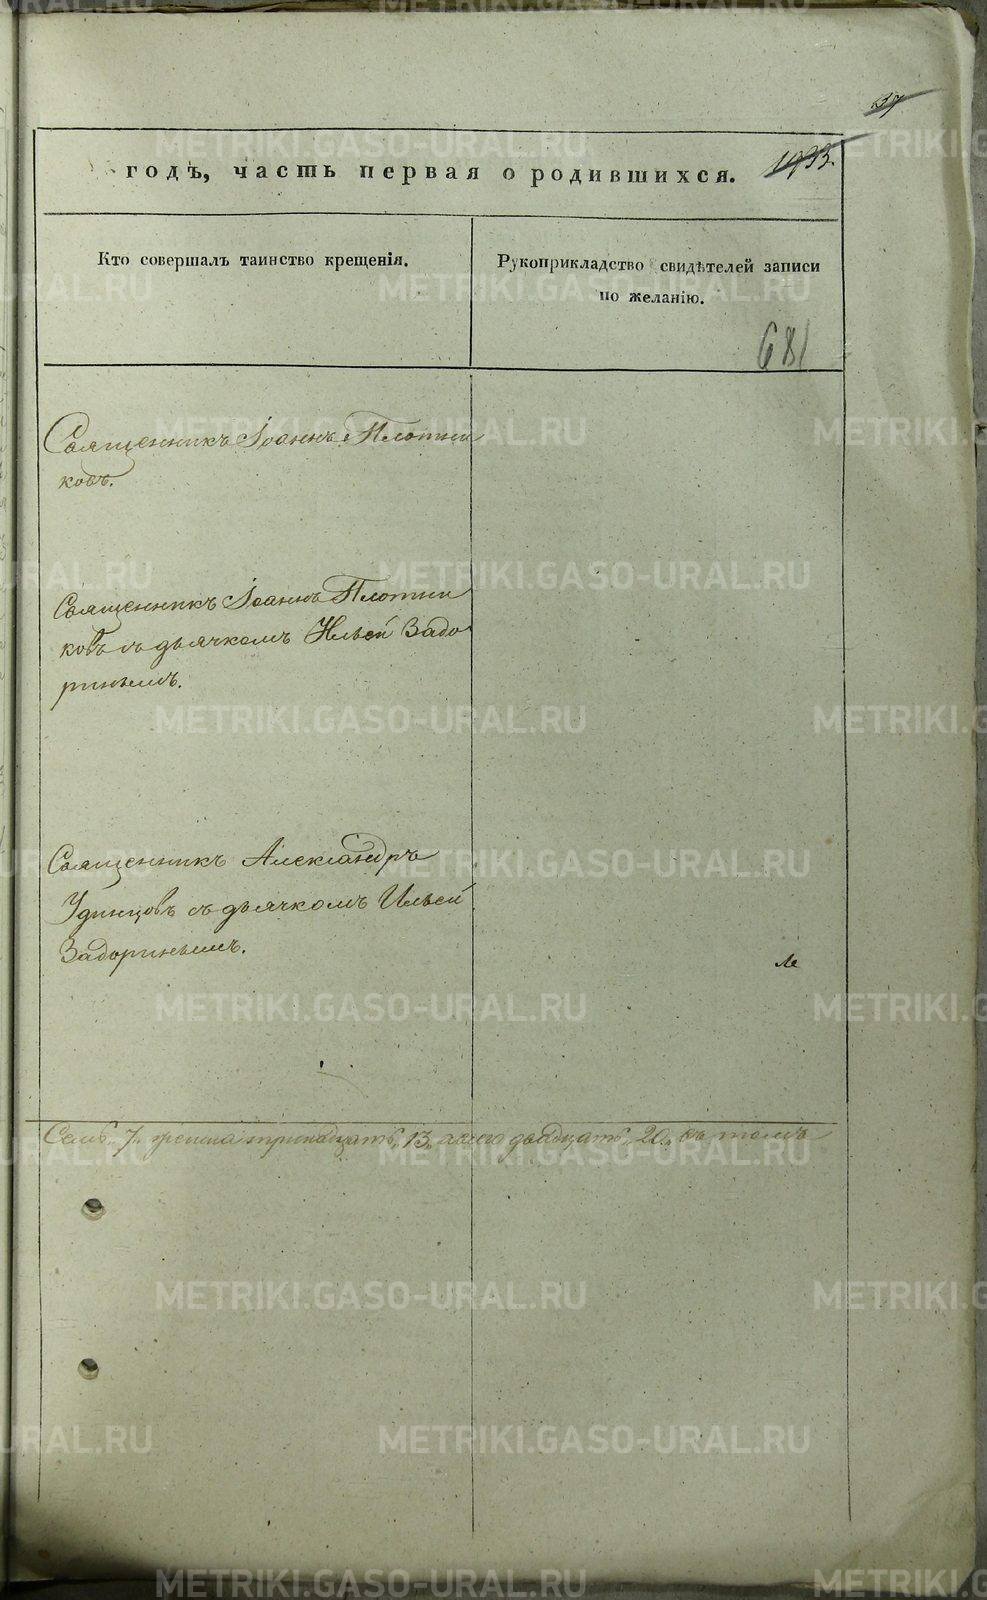 37
1033.
годъ, часть первая о родившихся.
Кто совершалъ таинство крещенія.
Рукоприкладство свидѣтелей записи
по желанію.
681
Священникъ Іоаннъ Плотни
ковъ.
Священникъ Іоаннъ Плотни
ковъ съ дьячкомъ Ильей Задо
ринымъ.
Священникъ Александръ
Удинцовъ съ дьячкомъ Ильей
Задоринымъ.
Семь „7„ женска тринадцать „13„ всего двадцать „20„ въ томъ
METRIKI.GASO-URAL.RU